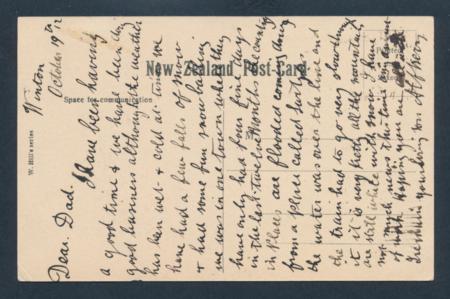 New Zealand Post Card.
Space for communication
W. Hill's series
Winton
October 19th
Dear Dad. I have been having
a good time & we have been doing
good business although the weather
has been wet & cold at times we
have had a few falls of snow
& had some fun snow balling
we was in one town where they
have only had four fine days
in the last twelve months the country
in places are flooded coming along
from a place called
the water was over the line and
the train had to go very slowly through
it it is very pretty all the mountains
are still white with snow I have
not much news this time
of work Hoping you are
I remain your loving son